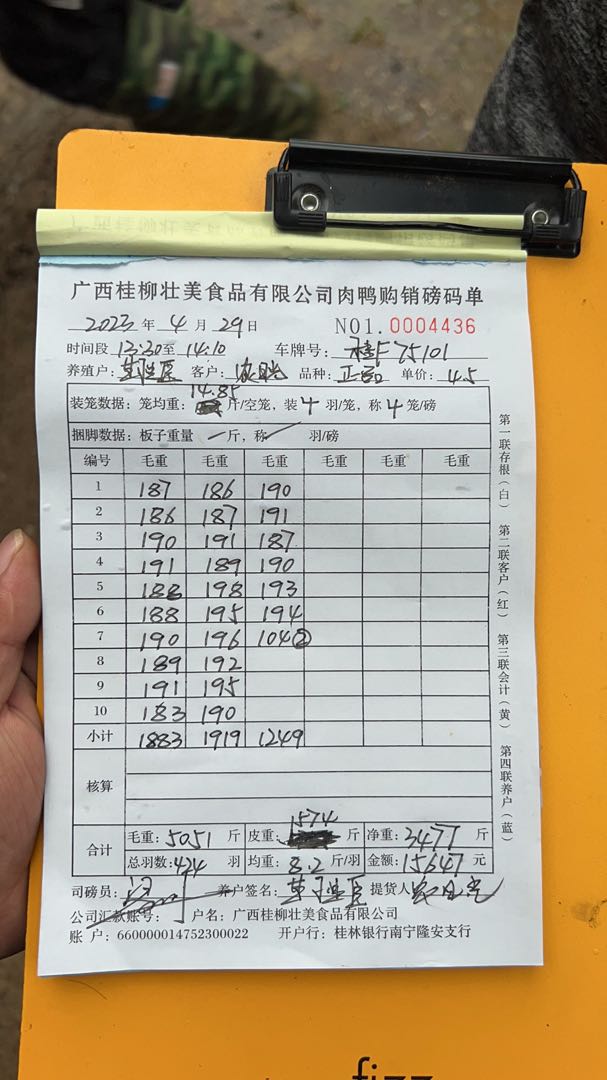 广西桂柳壮美食品有限公司肉鸭购销磅码单
2023 年 4 月 29 日 NO1. 0004436
时间段 13:30 至 14:10 车牌号: 桂F75101
养殖户: 客户: 品种: 单价: 4.5
14.85
装笼数据: 笼均重: 斤/空笼, 装 4 羽/笼, 称 4 笼/磅
捆脚数据: 板子重量 — 斤, 称 羽/磅
编号 毛重 毛重 毛重 毛重 毛重 毛重
1 187 186 190
2 186 187 191
3 190 191 187
4 191 189 190
5 188 198 193
6 188 195 194
7 190 196 104②
8 189 192
9 191 195
10 183 190
小计 1883 1919 1249
核算
1574
合计 毛重: 5051 斤 皮重: 斤 净重: 3477 斤
总羽数: 424 羽 均重: 8.2 斤/羽 金额: 15647 元
司磅员: 养户签名: 提货人
公司汇款账号: 户名: 广西桂柳壮美食品有限公司
账 户: 660000014752300022 开户行: 桂林银行南宁隆安支行
第一联存根(白) 第二联客户(红) 第三联会计(黄) 第四联养户(蓝)
fizz